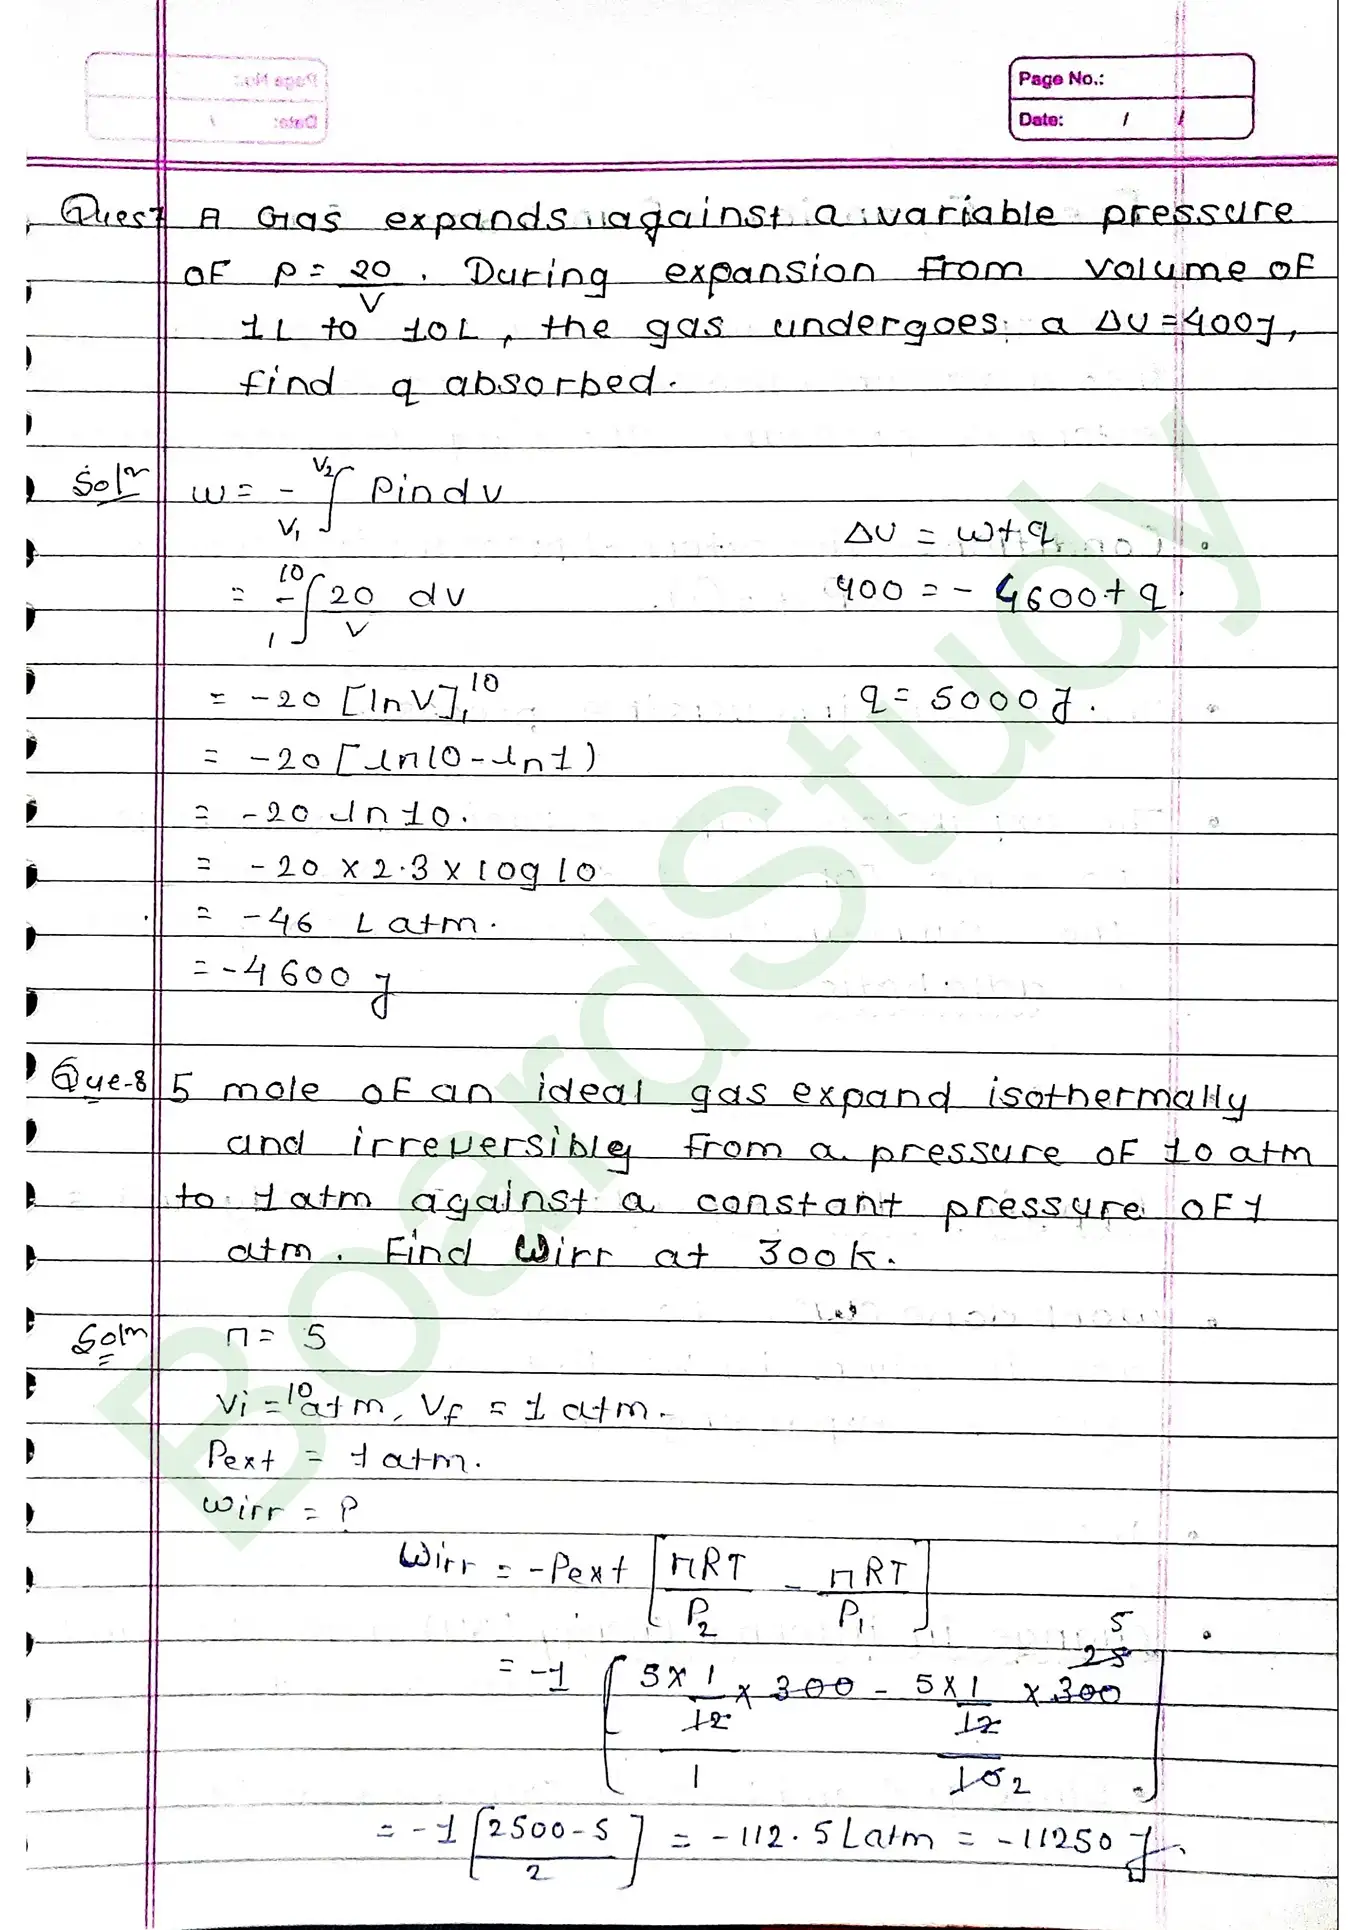 Page No.:
Date: / /
Ques7 A Gas expands against a variable pressure
of P = 20/V. During expansion from volume of
1L to 10L, the gas undergoes a ΔU = 400J,
find q absorbed.
Solⁿ w = - V₁∫V₂ Pin dv
ΔU = w + q
= - 1∫10 20/V dv
400 = - 4600 + q.
= -20 [ln V]₁¹⁰
q = 5000 J.
= -20 [ln10 - ln1)
= -20 ln 10.
= -20 x 2.3 x log 10
= -46 L atm.
= -4600 J
Que-8 5 mole of an ideal gas expand isothermally
and irreversibly from a pressure of 10 atm
to 1 atm against a constant pressure of 1
atm. Find Wirr at 300k.
Solⁿ n = 5
Vi = 10 atm, Vf = 1 atm.
Pext = 1 atm.
Wirr = P
Wirr = -Pext [nRT/P₂ - nRT/P₁]
= -1 [5 x 1/12 x 300 / 1 - 5 x 1/12 x 300 25 5 / 10 2]
= -1 [2500 - 5 / 2] = -112.5 L atm = -11250 J.
BoardStudy